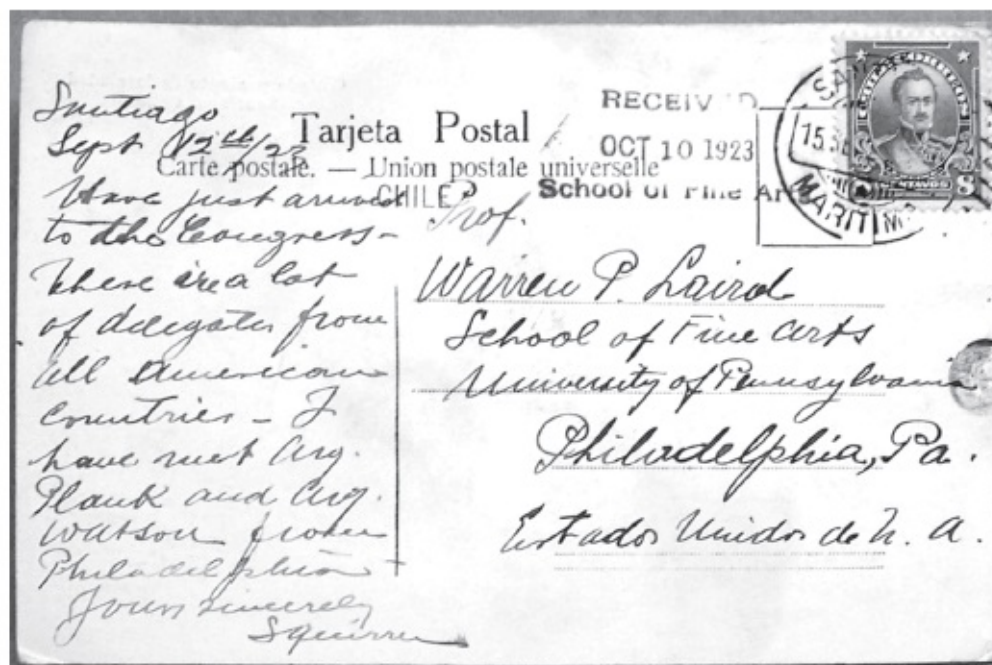 Santiago
Sept 12th/23
Have just arrived
to the Congress-
there are a lot
of delegates from
all American
Countries - I
have met Arq.
Plank and Arq.
Watson from
Philadelphia
Yours sincerely
Tarjeta Postal
Carte postale. — Union postale universelle
CHILE
RECEIVED
OCT 10 1923
School of Fine
MARITIM
Prof.
Warren P. Laird
School of Fine Arts
University of Pennsylvania
Philadelphia, Pa.
Estados Unidos de N. A.